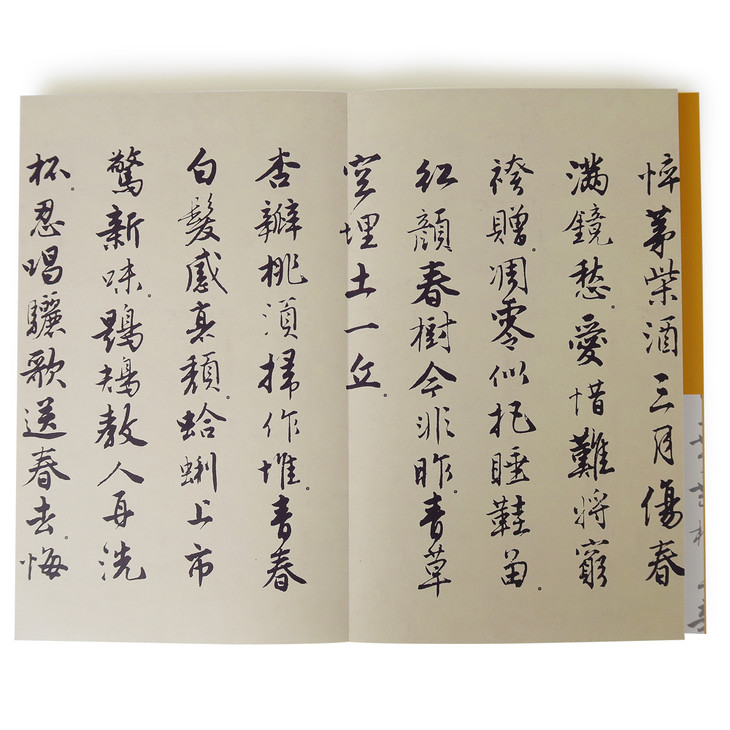 悴茅柴酒三月傷春
滿鏡愁。愛惜難將窮
袴贈。凋零似把睡鞋留。
紅顏春樹今非昨。青草
空埋土一丘。
杏瓣桃須掃作堆。青春
白髮感衰頹。蛤蜊上市
驚新味。鶗鴂教人再洗
杯。忍唱驪歌送春去。悔